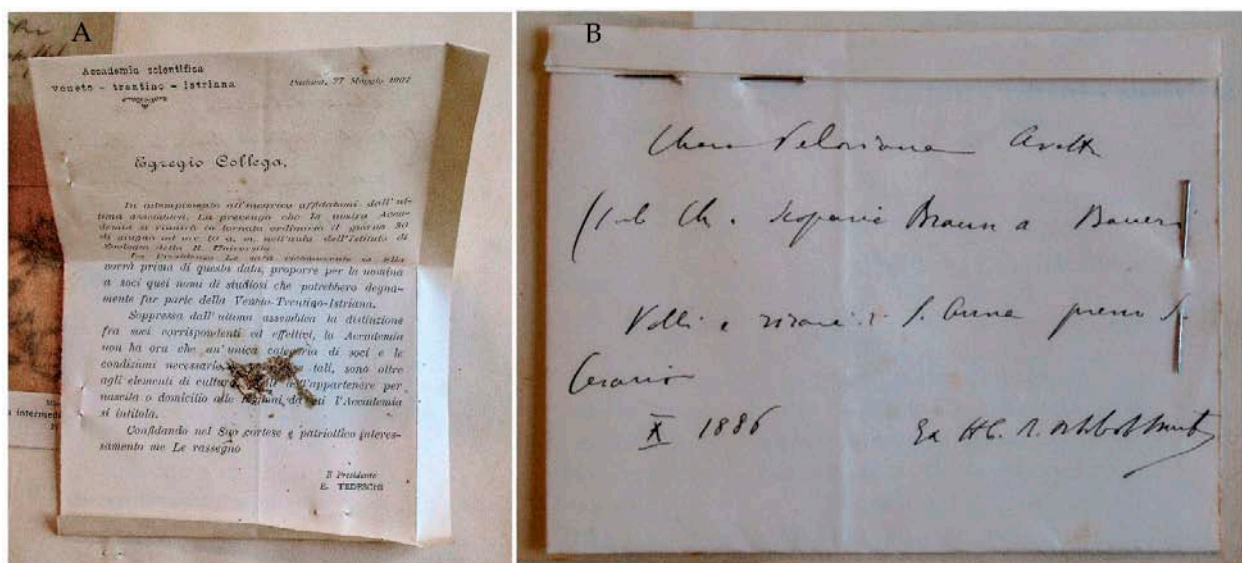 A
Accademia scientifica
veneto - trentino - istriana
Padova, 27 Maggio 1907
Egregio Collega,
In adempimento all'incarico affidatomi dall'ul-
tima assemblea, La prevengo che la nostra Acca-
demia si riunirà in tornata ordinaria il giorno 30
di giugno ad ore 10 a. m. nell'aula dell'Istituto di
Zoologia della R. Università.
La Presidenza Le sarà riconoscente se Ella
vorrà prima di questa data, proporre per la nomina
a soci quei nomi di studiosi che potrebbero degna-
mente far parte della Veneto-Trentino-Istriana.
Soppressa dall'ultima assemblea la distinzione
fra soci corrispondenti ed effettivi, la Accademia
non ha ora che un'unica categoria di soci e le
condizioni necessarie tali, sono oltre
agli elementi di cultura, dell'appartenere per
nascita o domicilio alle regioni da cui l'Accademia
si intitola.
Confidando nel Suo cortese e patriottico interes-
samento me Le rassegno
Il Presidente
E. TEDESCHI
intermed
B
Chara
(sub Ch. scoparia Braun a
Valli e risaie S. Anna presso S.
X 1886 Ex